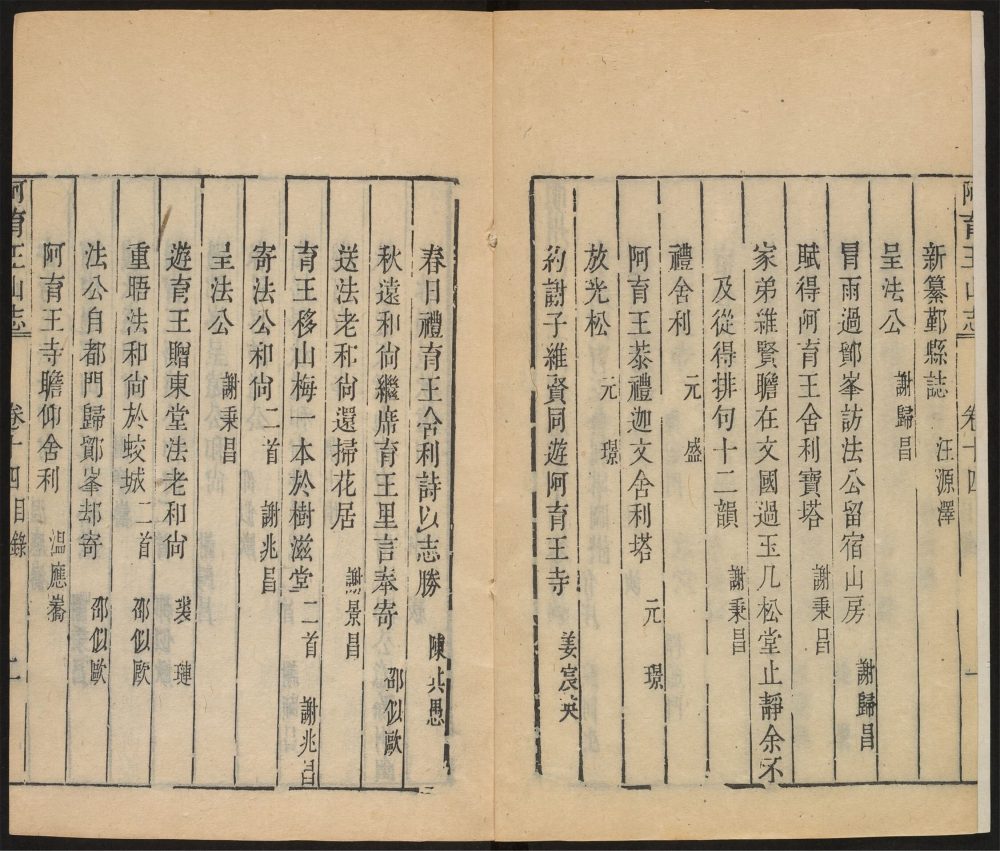 阿育王山志 卷十四 一
新纂鄞縣誌 汪源澤
呈法公 謝歸昌
冒雨過鄮峯訪法公留宿山房 謝歸昌
賦得阿育王舍利寶塔 謝秉昌
家弟維賢瞻在文國過玉几松堂止靜余不
及從得排句十二韻 謝秉昌
禮舍利 元盛
阿育王恭禮迦文舍利塔 元璟
放光松 元璟
約謝子維賢同遊阿育王寺 姜宸英
春日禮育王舍利詩以志勝 陳其愚
秋遠和尙繼席育王里言奉寄 邵似歐
送法老和尙還掃花居 謝景昌
育王移山梅一本於樹滋堂二首 謝兆昌
寄法公和尙二首 謝兆昌
呈法公 謝秉昌
遊育王贈東堂法老和尙 裘璉
重晤法和尙於蛟城二首 邵似歐
法公自都門歸鄮峯却寄 邵似歐
阿育王寺瞻仰舍利 温應嵩
阿育王山志 卷十四目錄 二